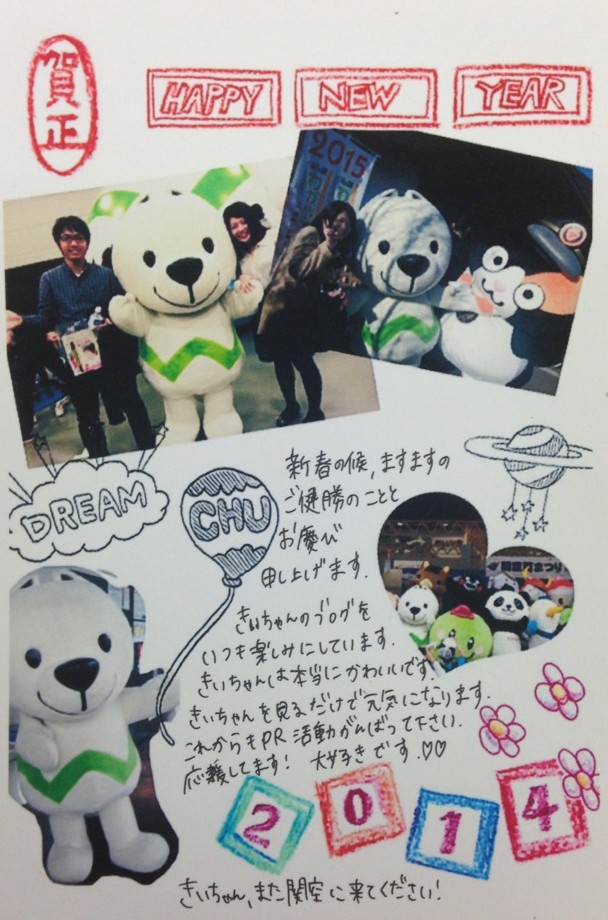 賀正
HAPPY NEW YEAR
2015
DREAM
CHU
新春の候、ますますの
ご健勝のことと
お慶び
申し上げます.
きいちゃんのブログを
いつも楽しみにしています.
きいちゃんは本当にかわいいです.
きいちゃんを見るだけで元気になります.
これからもPR活動がんばって下さい.
応援してます! 大好きです.♡♡
2014
きいちゃん、また関空に来てください!